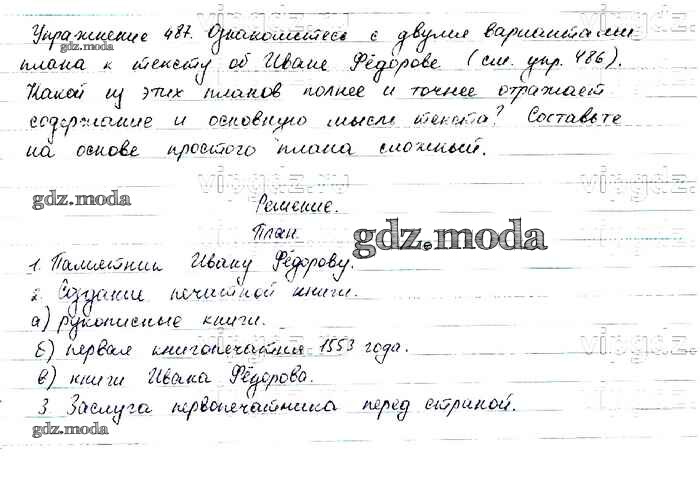 Упражнение 487. Ознакомьтесь с двумя вариантами
плана к тексту об Иване Фёдорове (см. упр. 486).
Какой из этих планов полнее и точнее отражает
содержание и основную мысль текста? Составьте
на основе простого плана сложный.
Решение.
План.
1. Памятник Ивану Фёдорову.
2. Создание печатной книги.
а) рукописные книги.
б) первая книгопечатня 1553 года.
в) книги Ивана Фёдорова.
3. Заслуга первопечатника перед страной.
gdz.moda
gdz.moda
gdz.moda
gdz.moda
vipgdz.ru